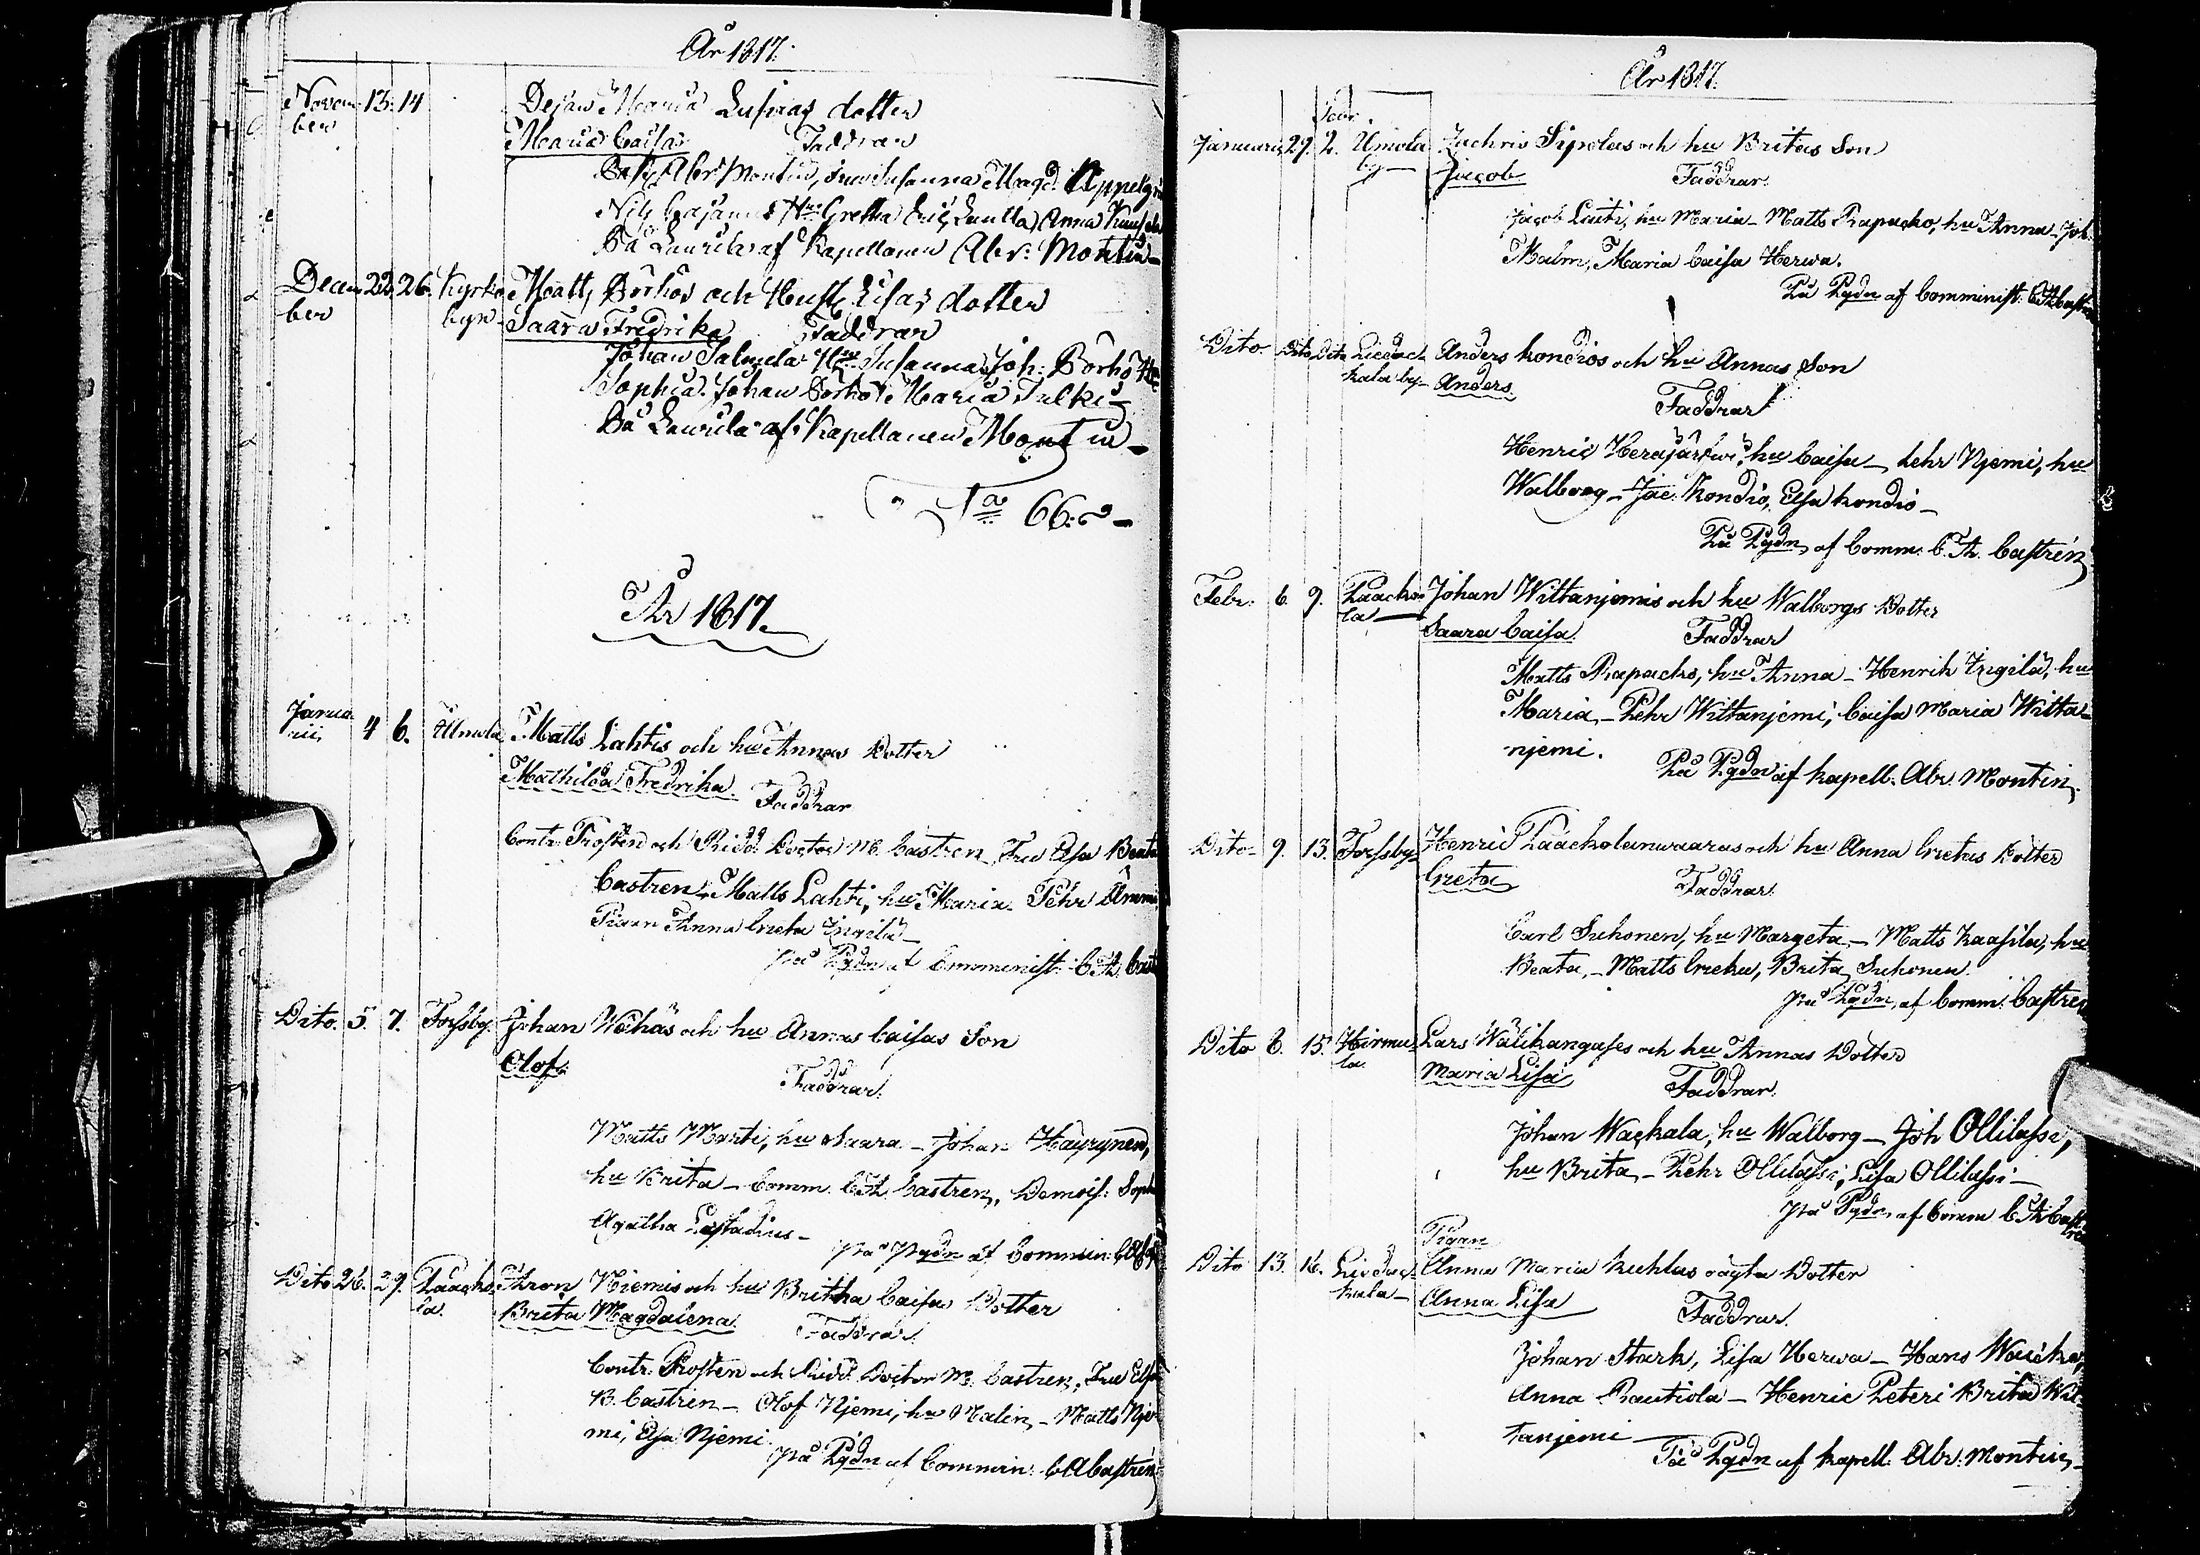 År 1817.
Novem 13. 14 Maria Lisas dotter
ber Maria Caisa Faddrar
Abr Montin, Susanna Magd.
Hu Gretha Anna
På Laurila af Kapellanen Abr: Montin
Decem 23. 26. Kyrko Matts Börkös och Hust. Lisas dotter
ber byn Saara Fredrika Faddrar
Johan Jalmela Hu Susanna Joh: Börkö Hu
Sophia. Johan Börkö Maria Tulki
På Laurila af Kapellanen Montin
66.
År 1817.
Janua
rii 4 6. Umola Matts Lahtis och hu Annas Dotter
Mathilda Fredrika. Faddrar
Contr. Prosten och Ridd. Doctor M. Castren, Fru Elsa Beata
Castren, Matts Lahti, hu Maria. Pehr
Pigan Anna Greta Ingilä
på Pgdn af Comminist. C. A. Cast
Dito. 5. 7. Forssby. Johan Wähäs och hu Annas Caisas Son
Olof. Faddrar.
Matts Marti, hu Saara – Johan Häyrynen,
hu Brita – Comm. C. A. Castren, Demois: Soph
Agatha Læstadius –
på Pgdn af Commin: C A
Dito 26. 29. Paacko Aron Niemis och hu Britha Caisas Dotter
la. Brita Magdalena. Faddrar.
Contr. Prosten och Ridd. Doctor M. Castren, Fru Elsa
B. Castrén – Olof Njemi, hu Malin, – Matts Nje
mi, Elsa Njemi
på Pgdn af Commin: C A Castrén
År 1817.
Febr.
Januarii 29. 2. Umola Zachris Sipolas och hu Britas Son
by – Jacob Faddrar.
Jacob Lauti, hu Maria – Matts Rapacko, hu Anna – Joh.
Malm, Maria Caisa Herwa.
På Pgdn af Comminist: C A Castrén
Dito. Dito Dito Liedack Anders Kondios och hu Annas Son
kala by – Anders. Faddrar
Henric Herajärwi, hu Caisa – Pehr Njemi, hu
Walborg – Jac. Kondio, Elsa Kondio –
På Pgdn, af Comm. C. A. Castrén
Febr. 6. 9. Paacko Johan Wittanjemis och hu Walborgs Dotter
la – Saara Caisa. Faddrar
Matts Rapacko, hu Anna – Henrik Ingilä, hu
Maria, – Pehr Wittanjemi, Caisa Maria Witta-
njemi.
På Pgdn af Kapell. Abr. Montin.
Dito – 9. 13. Forssby Henric Paackolanwaaras och hu Anna Gretas Dotter
Greta Faddrar.
Carl Suhonen, hu Margeta – Matts Kaasila, hu
Beata, – Matts Greku, Brita Suhonen.
på Pgdn af Comm. Castren
Dito 6. 15. Hirmu- Lars Wälikangases och hu Annas Dotter
la. Maria Lisa Faddrar.
Johan Wackala, hu Walborg – Joh Ollilassi,
hu Brita – Pehr Ollilassi, Lisa Ollilassi –
på Pgdn, af Comm C. A. Cast
ren
Pigan
Dito 13. 16. Liedac- Anna Maria Kuhlas oägta Dotter
kala – Anna Lisa Faddrar.
Johan Stark, Lisa Herwa – Hans
Anna Rautiola – Henric Peteri Brita Wit-
tanjemi
På Pgdn af Kapell. Abr. Montin,